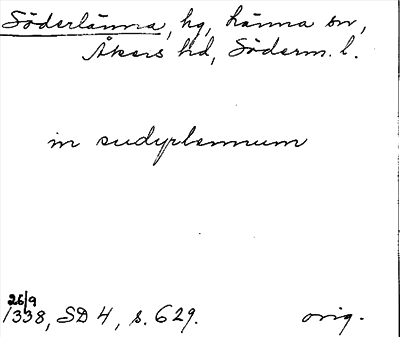 Söderlänna, hg, Länna sn,
Åkers hd, Söderm. l.
in sudyrlennum
26/9
1338, SD 4, s. 629. orig.